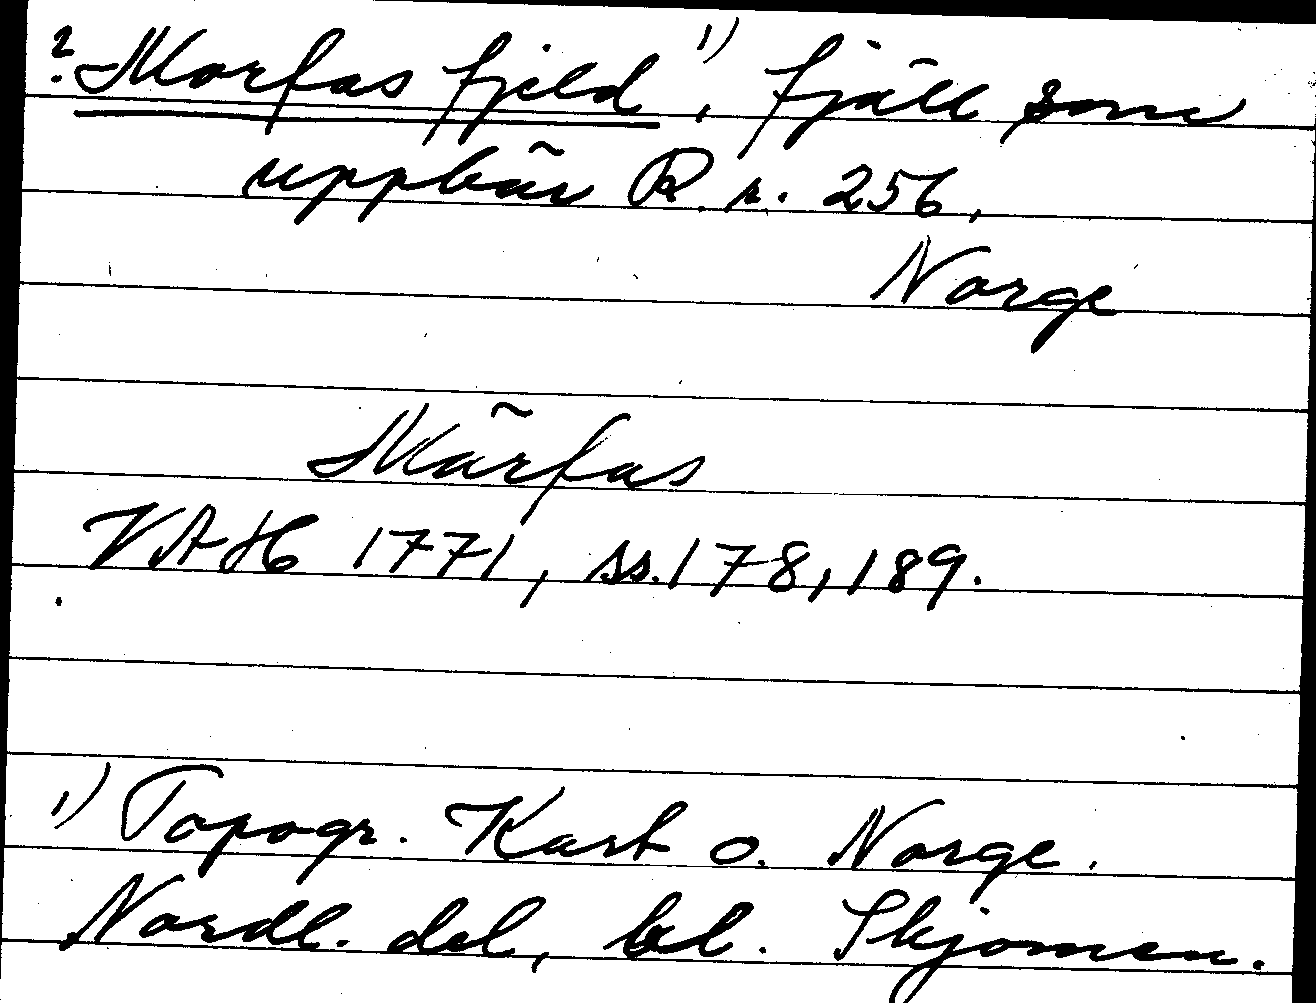 ? Morfas fjeld ¹⁾, fjäll som
uppbär R. r. 256,
Norge
Märfas
VAH 1771, ss. 178, 189.
1) Topogr. Kart o. Norge.
Nordl. del, bl. Skjomen.